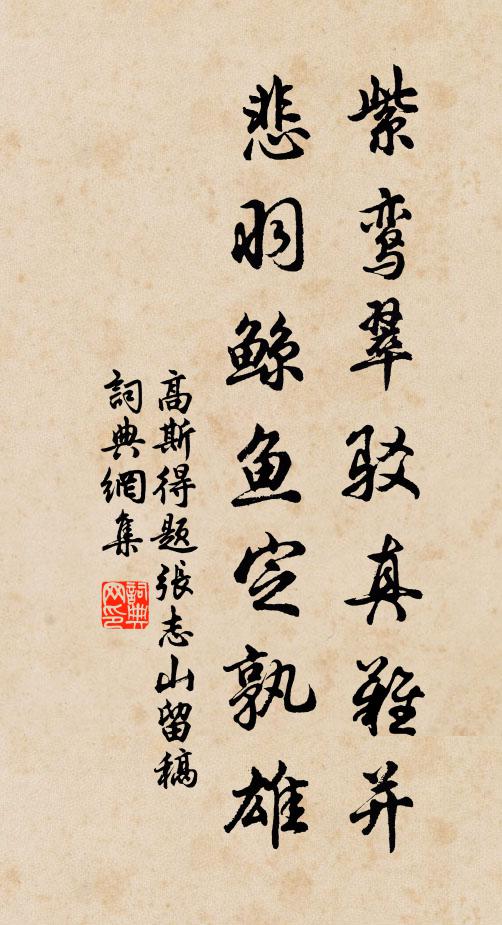 紫鸾翠驳真难并
悲羽鲸鱼定孰雄
高斯得題張志山留稿
詞典網集
詞典网印